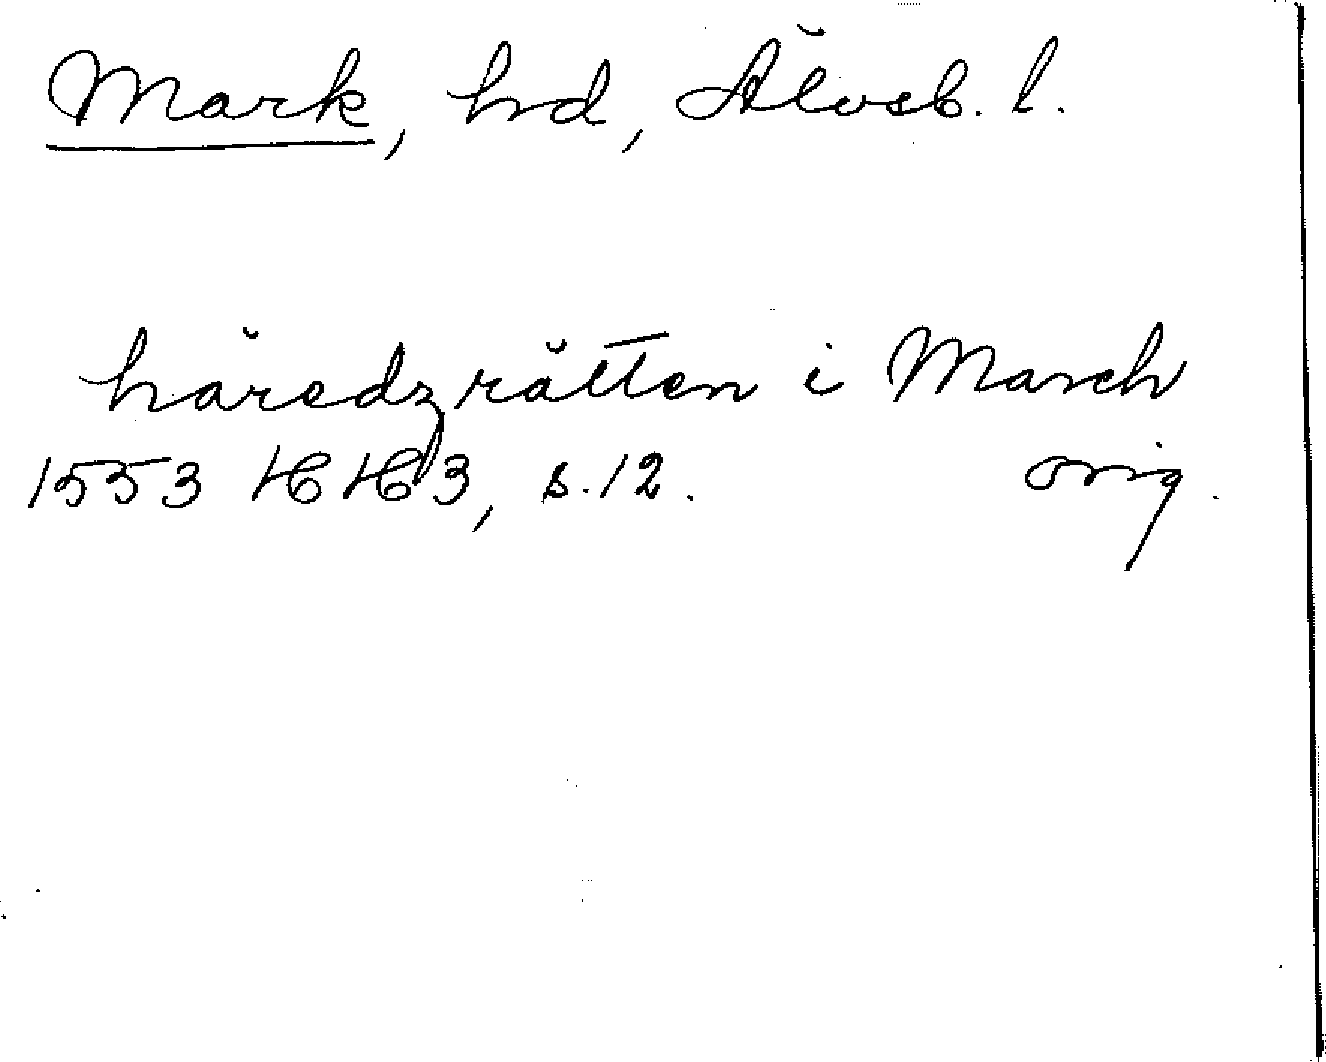 Mark, hd, Älvsb. l.
häredzrätten i March
1553 HH 3, s. 12. orig.